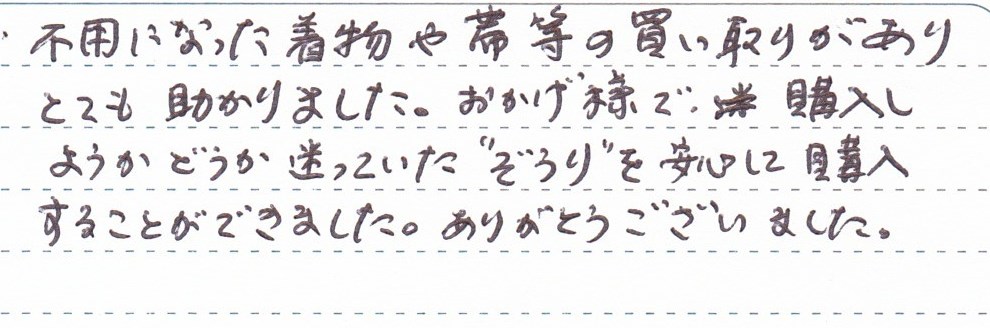 不用になった着物や帯等の買い取りがあり
とても助かりました。おかげ様で、購入し
ようかどうか迷っていた"ぞうり"を安心して購入
することができました。ありがとうございました。